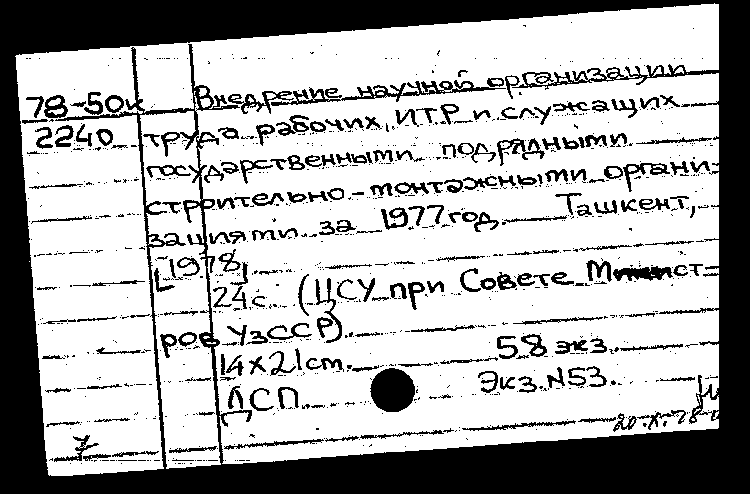 78-50к Внедрение научной организации
2240 труда рабочих, ИТР и служащих
государственными подрядными
строительно-монтажными органи-
зациями за 1977 год. Ташкент,
[1978].
24с. (ЦСУ при Совете Минист-
ров УзССР).
14x21cm. 58 экз.
ДСП. Экз. N53.
7 20.X.78